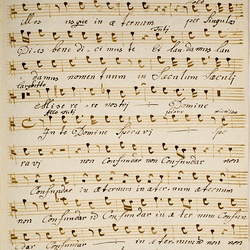 in æternum per Singulos
Tutti
Dies bene dicimus te Et Laudamus lau
damus nomen tuum in Sæculum Sæculi
Miserere nostri Domine
In te Domine Speravi spe
ravi non Confundar non Confundar non
Confundar in æternum in æternum æternum
non Confundar non Confundar in æternum non Confun
dar Confundar in æternum non